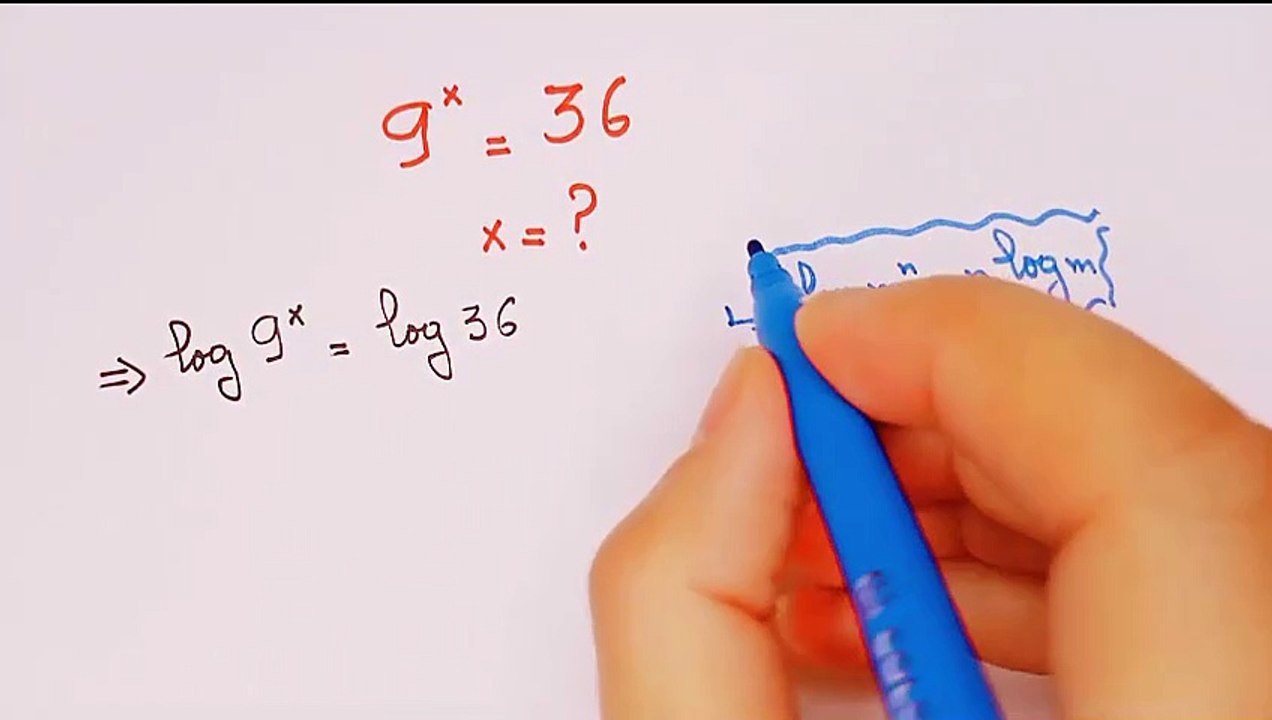 9ˣ = 36
x = ?
⇒ log 9ˣ = log 36
n log m